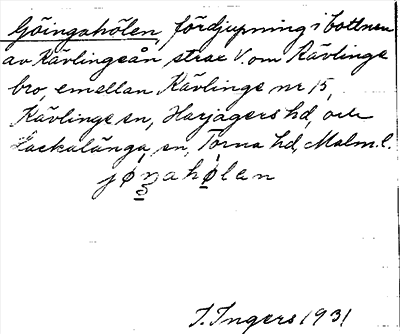 Göingahölen, fördjupning i bottnen
av Kävlingeån strax V. om Kävlinge
bro, emellan Kävlinge nr 15,
Kävlinge sn, Harjagers hd, och
Lackalänga sn, Torna hd, Malm. l.
I. Ingers 1931